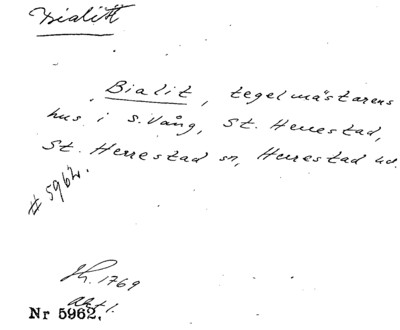 Bialitt
Bialit, tegelmästarens
hus i S. Vång, St. Herrestad,
St. Herrestad sn, Herrestad hd.
# 5962.
1769
akt 1.
Nr 5962,